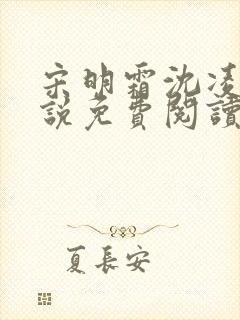 宋明霜沈凌
說免費閱讀
夏長安